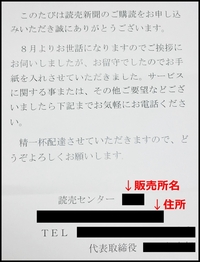 このたびは読売新聞のご購読をお申し込
みいただき誠にありがとうございます。
８月よりお世話になりますのでご挨拶に
お伺いしましたが、お留守でしたのでお手
紙を入れさせていただきました。サービス
に関する事または、その他ご要望などござ
いましたら下記までお気軽にお電話くださ
い。
精一杯配達させていただきますので、ど
うぞよろしくお願いします。
↓販売所名
読売センター
↓住所
ＴＥＬ
代表取締役